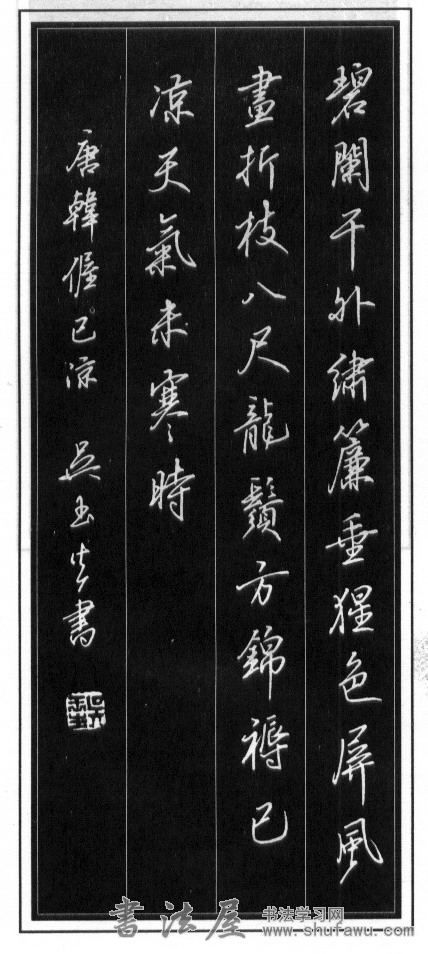 碧闌干外繡簾垂猩色屏風
畫折枝八尺龍鬚方錦褥已
凉天氣未寒時
唐韓偓已凉 吳玉生書
書法屋 书法学习网
www.shufawu.com